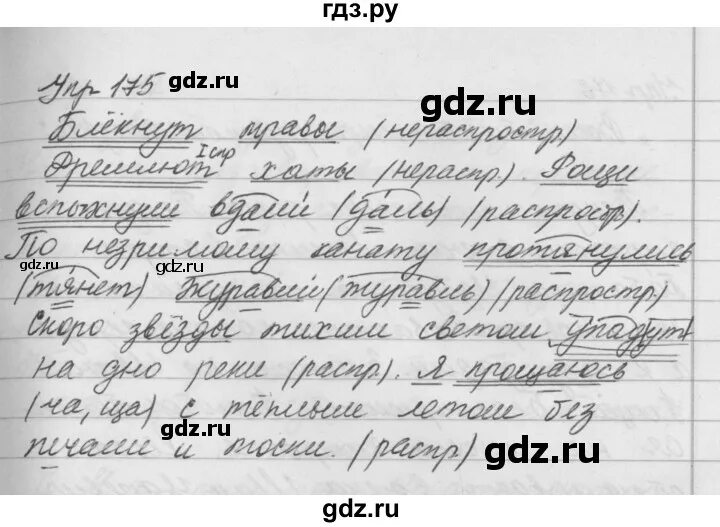 гдз.ру
Упр 175 gdz.ru
Блёкнут травы (нераспростр)
Iспр
Дремлют хаты (нераспр). Рощи
gdz.ru gdz.ru
вспыхнули вдали (даль) (распростр).
По незримому канату протянулись
(тянет) Журавли (журавль) (распростр.)
gdz.ru
Скоро звёзды тихим светом упадут
на дно реки (распр). Я прощаюсь
gdz.ru
(ча, ща) с тёплым летом без
печали и тоски. (распр)
gdz.ru gdz.ru
gdz.ru